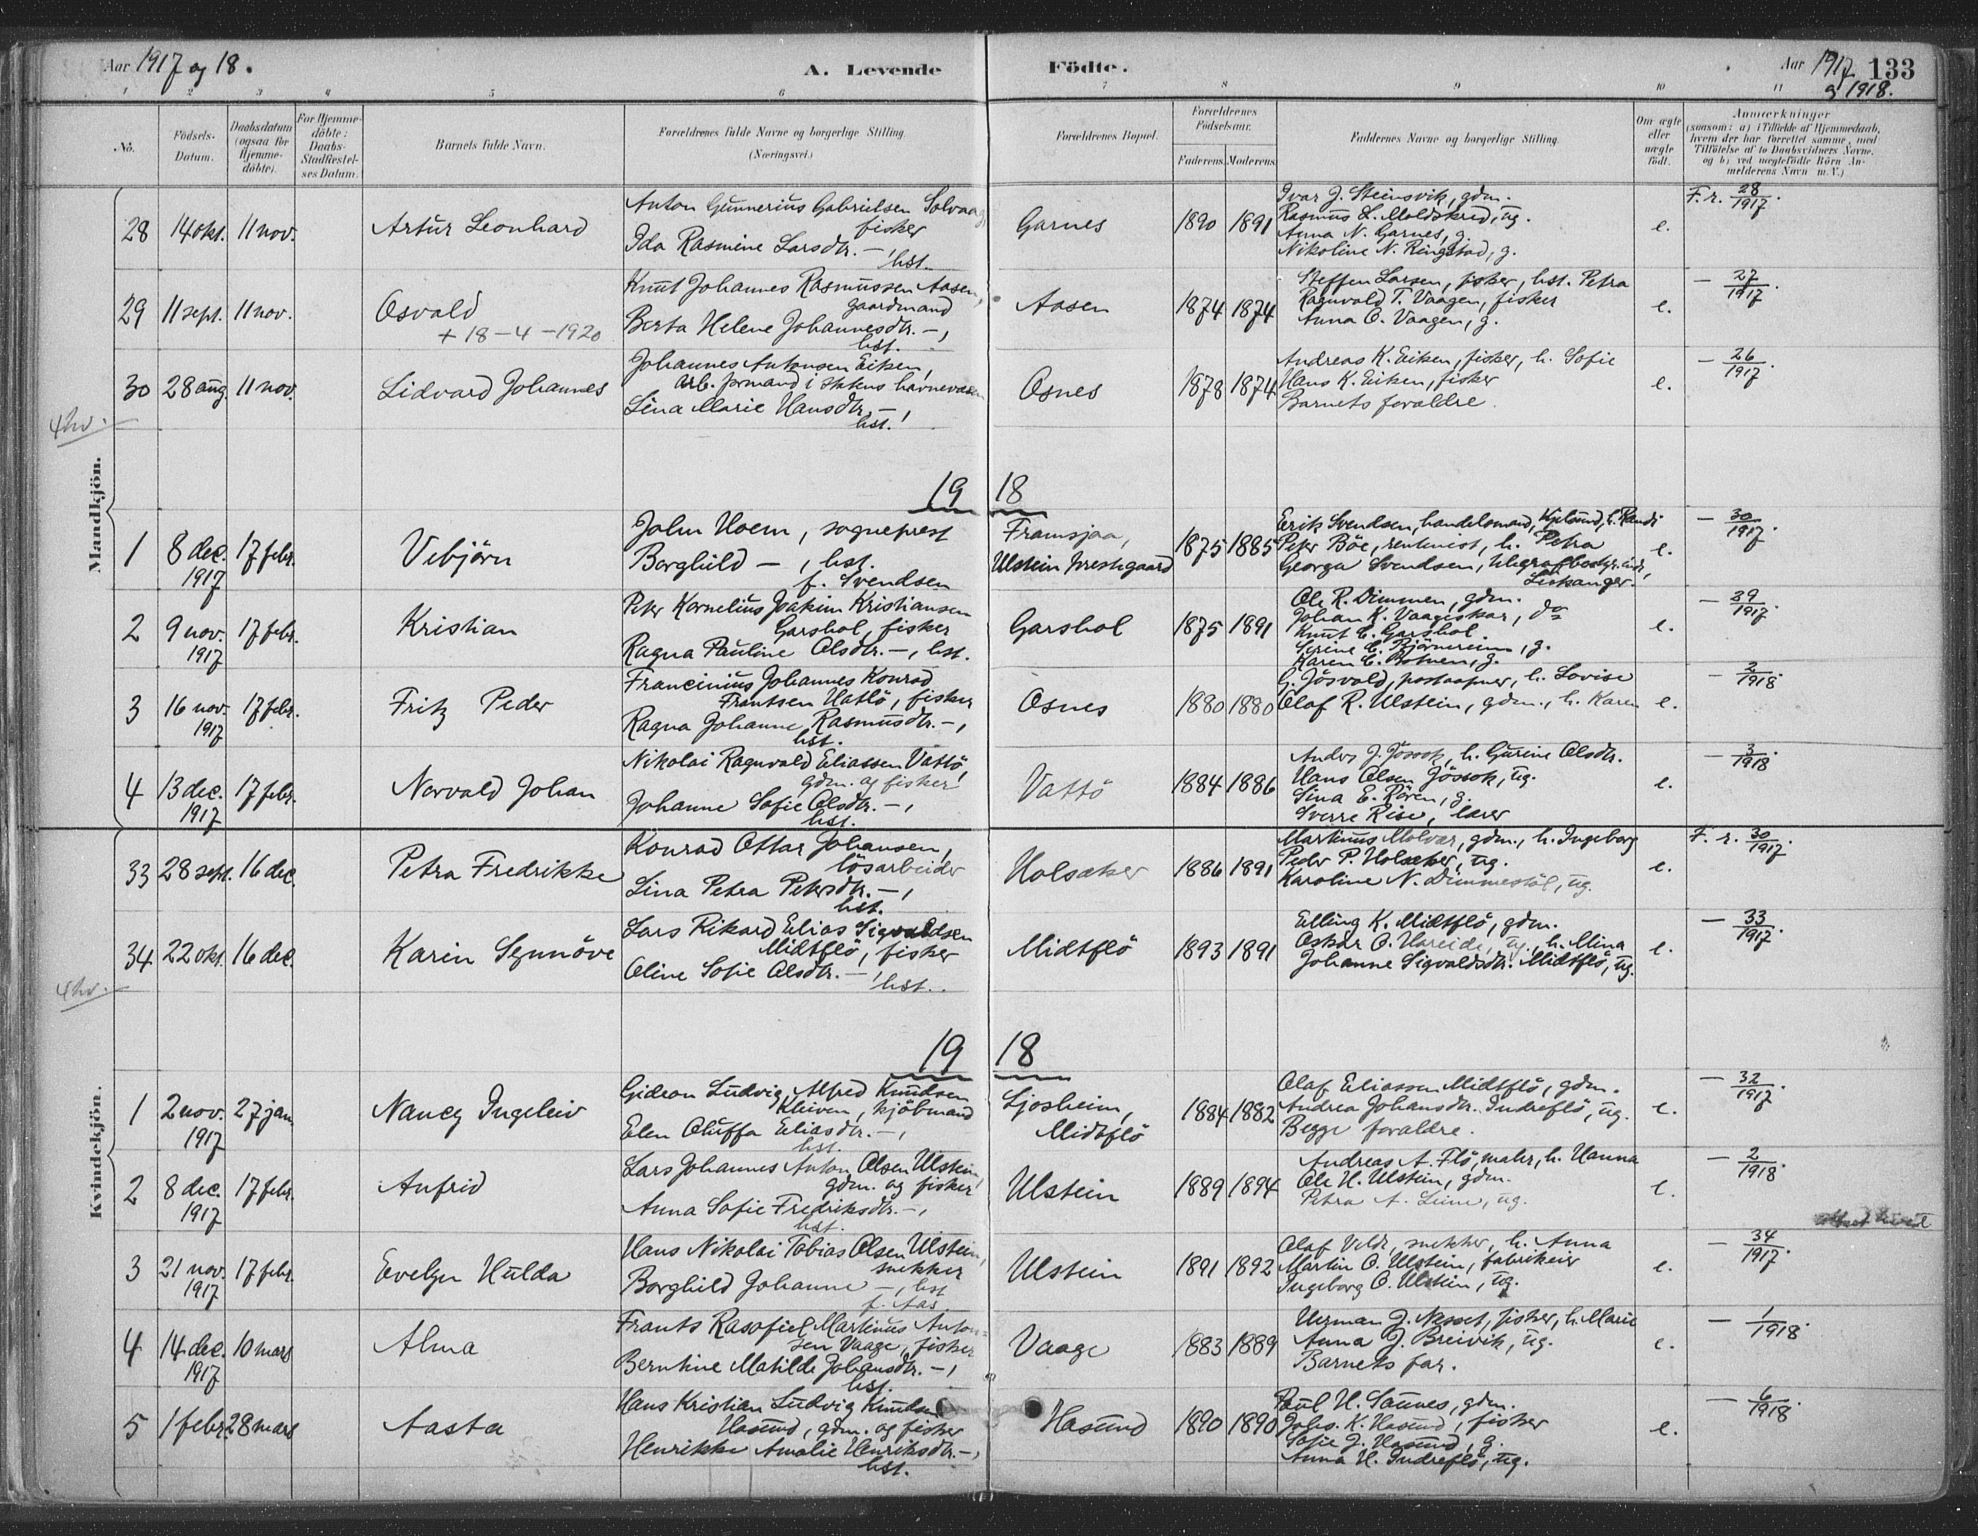 Aar 1917 og 18.
A. Levende Födte.
Aar 1917 og 1918.
133
1 2 3 4 5 6 7 8 9 10 11
No.
Födsels-Datum.
Daabsdatum (ogsaa for Hjemme-döbte).
For Hjemme-döbte: Daabs-Stadfæstel-ses Datum.
Barnets fulde Navn.
Forældrenes fulde Navne og borgerlige Stilling. (Næringsvei.)
Forældrenes Bopæl.
Forældrenes Födselsaar.
Faderens. Moderens.
Faddernes Navne og borgerlige Stilling.
Om ægte eller uægte födt.
Anmærkninger
(saasom: a) i Tilfælde af Hjemmedaab, hvem der har forrettet samme, med Tilföielse af to Daabsvidners Navne, og b) ved uægtefödte Börn An-melderens Navn m. V.)
Mandkjön.
28 14 okt. 11 nov. Artur Leonhard
Anton Gunnerius Gabrielsen Solvaag, fisker
Ida Rasmine Larsdtr. —, hst.
Garnes 1890 1891
Ivar J. Steinsvik, gdm.
Rasmus L. Moldskred, ug.
Anna N. Garnes, g.
Nikoline N. Ringstad, g.
e. F. r. 28/1917.
29 11 sept. 11 nov. Osvald
+ 18-4-1920
Knut Johannes Rasmussen Aasen, gaardmand
Berta Helene Johannesdtr. —, hst.
Aasen 1874 1874
Steffen Larsen, fisker, hst. Petra
Ragnvald T. Vaagen, fisker
Anna O. Vaagen, g.
e. — 27/1917.
30 28 aug. 11 nov. Lidvard Johannes
Johannes Antonsen Eiken,
arb. formand i statens havnevæsen
Lina Marie Hansdtr. —, hst.
Osnes 1878 1874
Andreas K. Eiken, fisker, h. Sofie
Hans K. Eiken, fisker
Barnets forældre.
e. — 26/1917.
4 hv.
19 18
1 8 dec. 1917 17 febr. Vebjörn
John Hoem, sogneprest
Borghild —, hst.
f. Svendsen
Framsjaa,
Ulstein prestegaard 1875 1885
Erik Svendsen, handelsmand, h. Randi
Peter Böe, rentenist, h. Petra
Georga Svendsen,
e. — 30/1917.
2 9 nov. 1917 17 febr. Kristian
Peter Kornelius Joakim Kristiansen
Garshol, fisker
Ragna Pauline Olsdtr. —, hst.
Garshol 1875 1891
Ole R. Dimmen, gdm.
Johan K. Vaageskar, do
Knut E. Garshol.
Serine E. Bjørnereim, g.
Karen E. Botnen, g.
e. — 39/1917.
3 16 nov. 1917 17 febr. Fritz Peder
Francinius Johannes Konrad
Frantsen Hatlö, fisker
Ragna Johanne Rasmusdtr. —, hst.
Osnes 1880 1880
G. Jösvold, postaapner, h. Lovise
Olaf R. Ulstein, gdm., h. Karen
e. — 2/1918.
4 13 dec. 1917 17 febr. Norvald Johan
Nikolai Ragnvald Eliassen Vattö,
gdm. og fisker
Johanne Sofie Olsdtr. —, hst.
Vattö 1884 1886
Anders J. Jössok, h. Gurine Olsdtr.
Hans Olsen Jössok, ug.
Lina E. Rören, g.
Sverre Riise, lærer
e. — 3/1918.
Kvindekjön.
33 28 sept. 16 dec. Petra Fredrikke
Konrad Ottar Johansen,
lösarbeider
Lina Petra Petersdtr. —, hst.
Holsæker 1886 1891
Martinus Molvær, gdm., h. Ingeborg
Peder P. Holsæker, ug.
Karoline N. Dimmestöl, ug.
e. F. r. 30/1917.
34 22 okt. 16 dec. Karin Synnöve
Lars Rikard Elias Sigvaldsen
Midtflö, fisker
Oline Sofie Olsdtr. —, hst.
Midtflö 1893 1891
Elling K. Midtflö, gdm.
Oskar O. Hareide, ug., h. Mina
Johanne Sigvaldsdtr. Midtflö, ug.
e. — 33/1917.
4 hv.
19 18
1 2 nov. 1917 27 jan. Nancy Ingeleiv
Gideon Ludvig Alfred Knudsen
Kleiven, kjöbmand
Elen Oluffa Eliasdtr. —, hst.
Ljosheim,
Midtflö 1884 1882
Olaf Eliassen Midtflö, gdm.
Andrea Johansdtr. Indreflö, ug.
Begge forældre.
e. — 32/1917.
2 8 dec. 1917 17 febr. Anfrid
Lars Johannes Anton Olsen Ulstein,
gdm. og fisker
Anna Sofie Fredriksdtr. —, hst.
Ulstein 1889 1894
Andreas A. Flö, maler, h. Hanna
Ole H. Ulstein, gdm.
Petra A. Liim, ug.
e. — 2/1918.
3 21 nov. 1917 17 febr. Evelyn Hulda
Hans Nikolai Tobias Olsen Ulstein,
snekker
Borghild Johanne —, hst.
f. Aas
Ulstein 1891 1892
Olaf Velde, snekker, h. Anna
Martin O. Ulstein, fabrikeier
Ingeborg O. Ulstein, ug.
e. — 34/1917.
4 14 dec. 1917 10 mars Alma
Frants Rasafiel Martinus Anton-
sen Vaage, fisker
Berntine Matilde Johansdtr. —, hst.
Vaage 1883 1889
Herman J. Nesset, fisker, h. Marie
Anna J. Breivik, ug.
Barnets far.
e. — 1/1918.
5 1 febr. 28 mars Aasta
Hans Kristian Ludvig Knudsen
Hasund, gdm. og fisker
Henrikke Amalie Henriksdtr. —, hst.
Hasund 1890 1890
Paul H. Saunes, gdm.
Johs. K. Hasund, fisker
Sofie J. Hasund, g.
Anna H. Indreflö, ug.
e. — 6/1918.